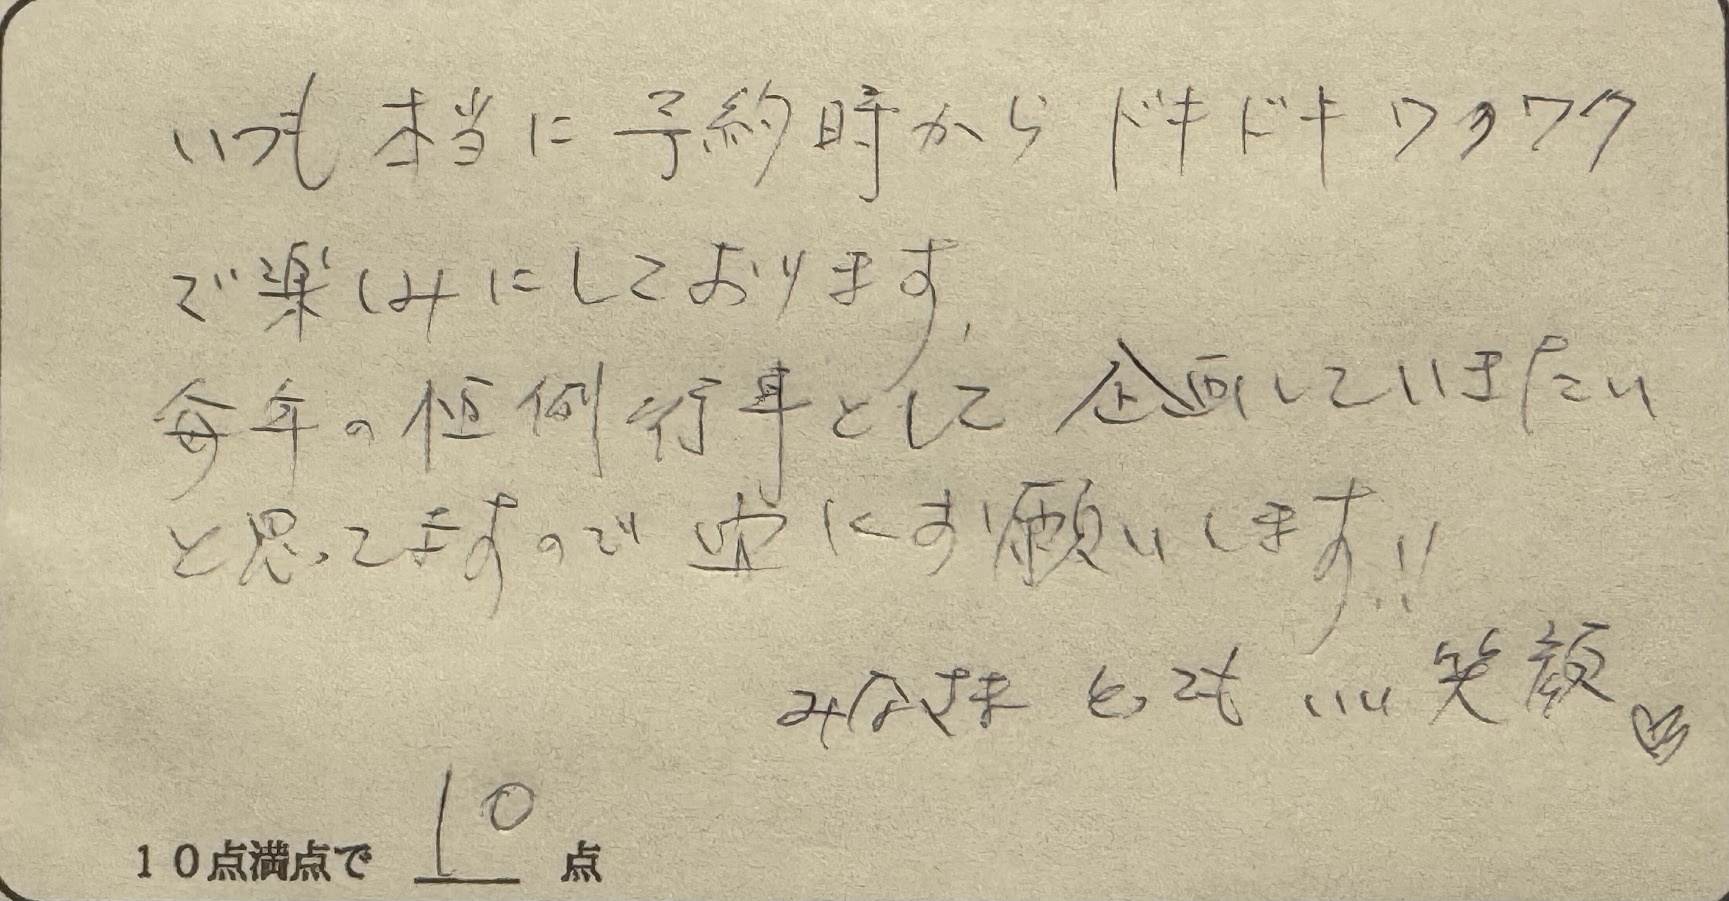 いつも本当に予約時からドキドキワクワク
で楽しみにしております。
毎年の恒例行事として企画していきたい
と思ってますので 更にお願いします!!
みなさま とっても いい笑顔♡
10点満点で 10 点